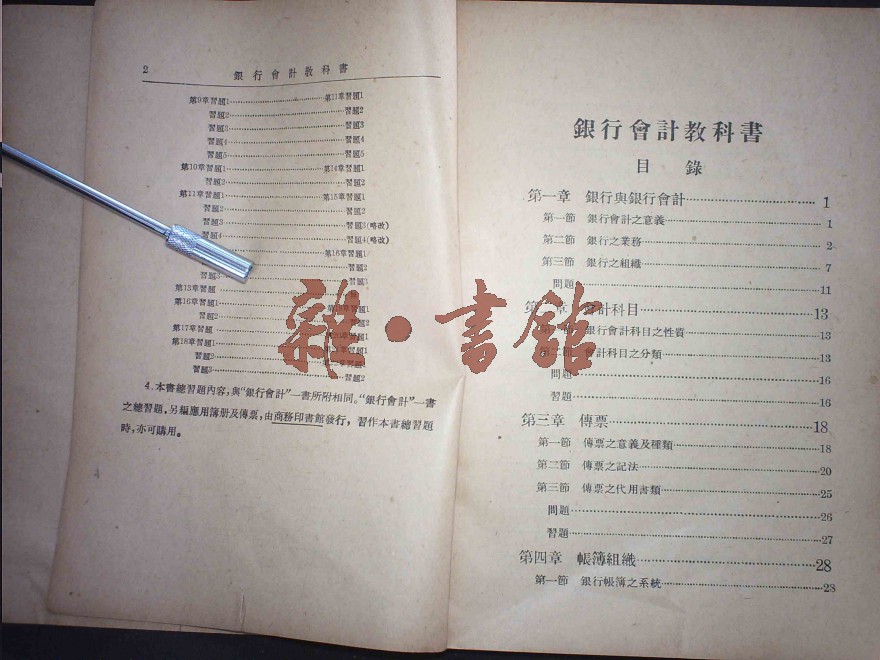 2 銀行會計教科書
第9章習題1 第11章習題1
習題2 習題2
習題3 習題3
習題4 習題4
習題5 習題5
第10章習題1 第14章習題1
習題2 習題2
第11章習題1 第15章習題1
習題2 習題2
習題3 習題3(略改)
習題4 習題4(略改)
第16章習題1
習題2
習題3
第13章習題
第16章習題1
習題2
第17章習題
第18章習題1
習題2
習題3 習題2
4. 本書總習題內容,與“銀行會計”一書所附相同。“銀行會計”一書
之總習題,另編應用簿册及傳票,由商務印書館發行,習作本書總習題
時,亦可購用。
銀行會計教科書
目錄
第一章 銀行與銀行會計 1
第一節 銀行會計之意義 1
第二節 銀行之業務 2
第三節 銀行之組織 7
問題 11
第二章 會計科目 13
第一節 銀行會計科目之性質 13
第二節 會計科目之分類 13
問題 16
習題 16
第三章 傳票 18
第一節 傳票之意義及種類 18
第二節 傳票之記法 20
第三節 傳票之代用書類 25
問題 26
習題 27
第四章 帳簿組織 28
第一節 銀行帳簿之系統 28
雜·書館